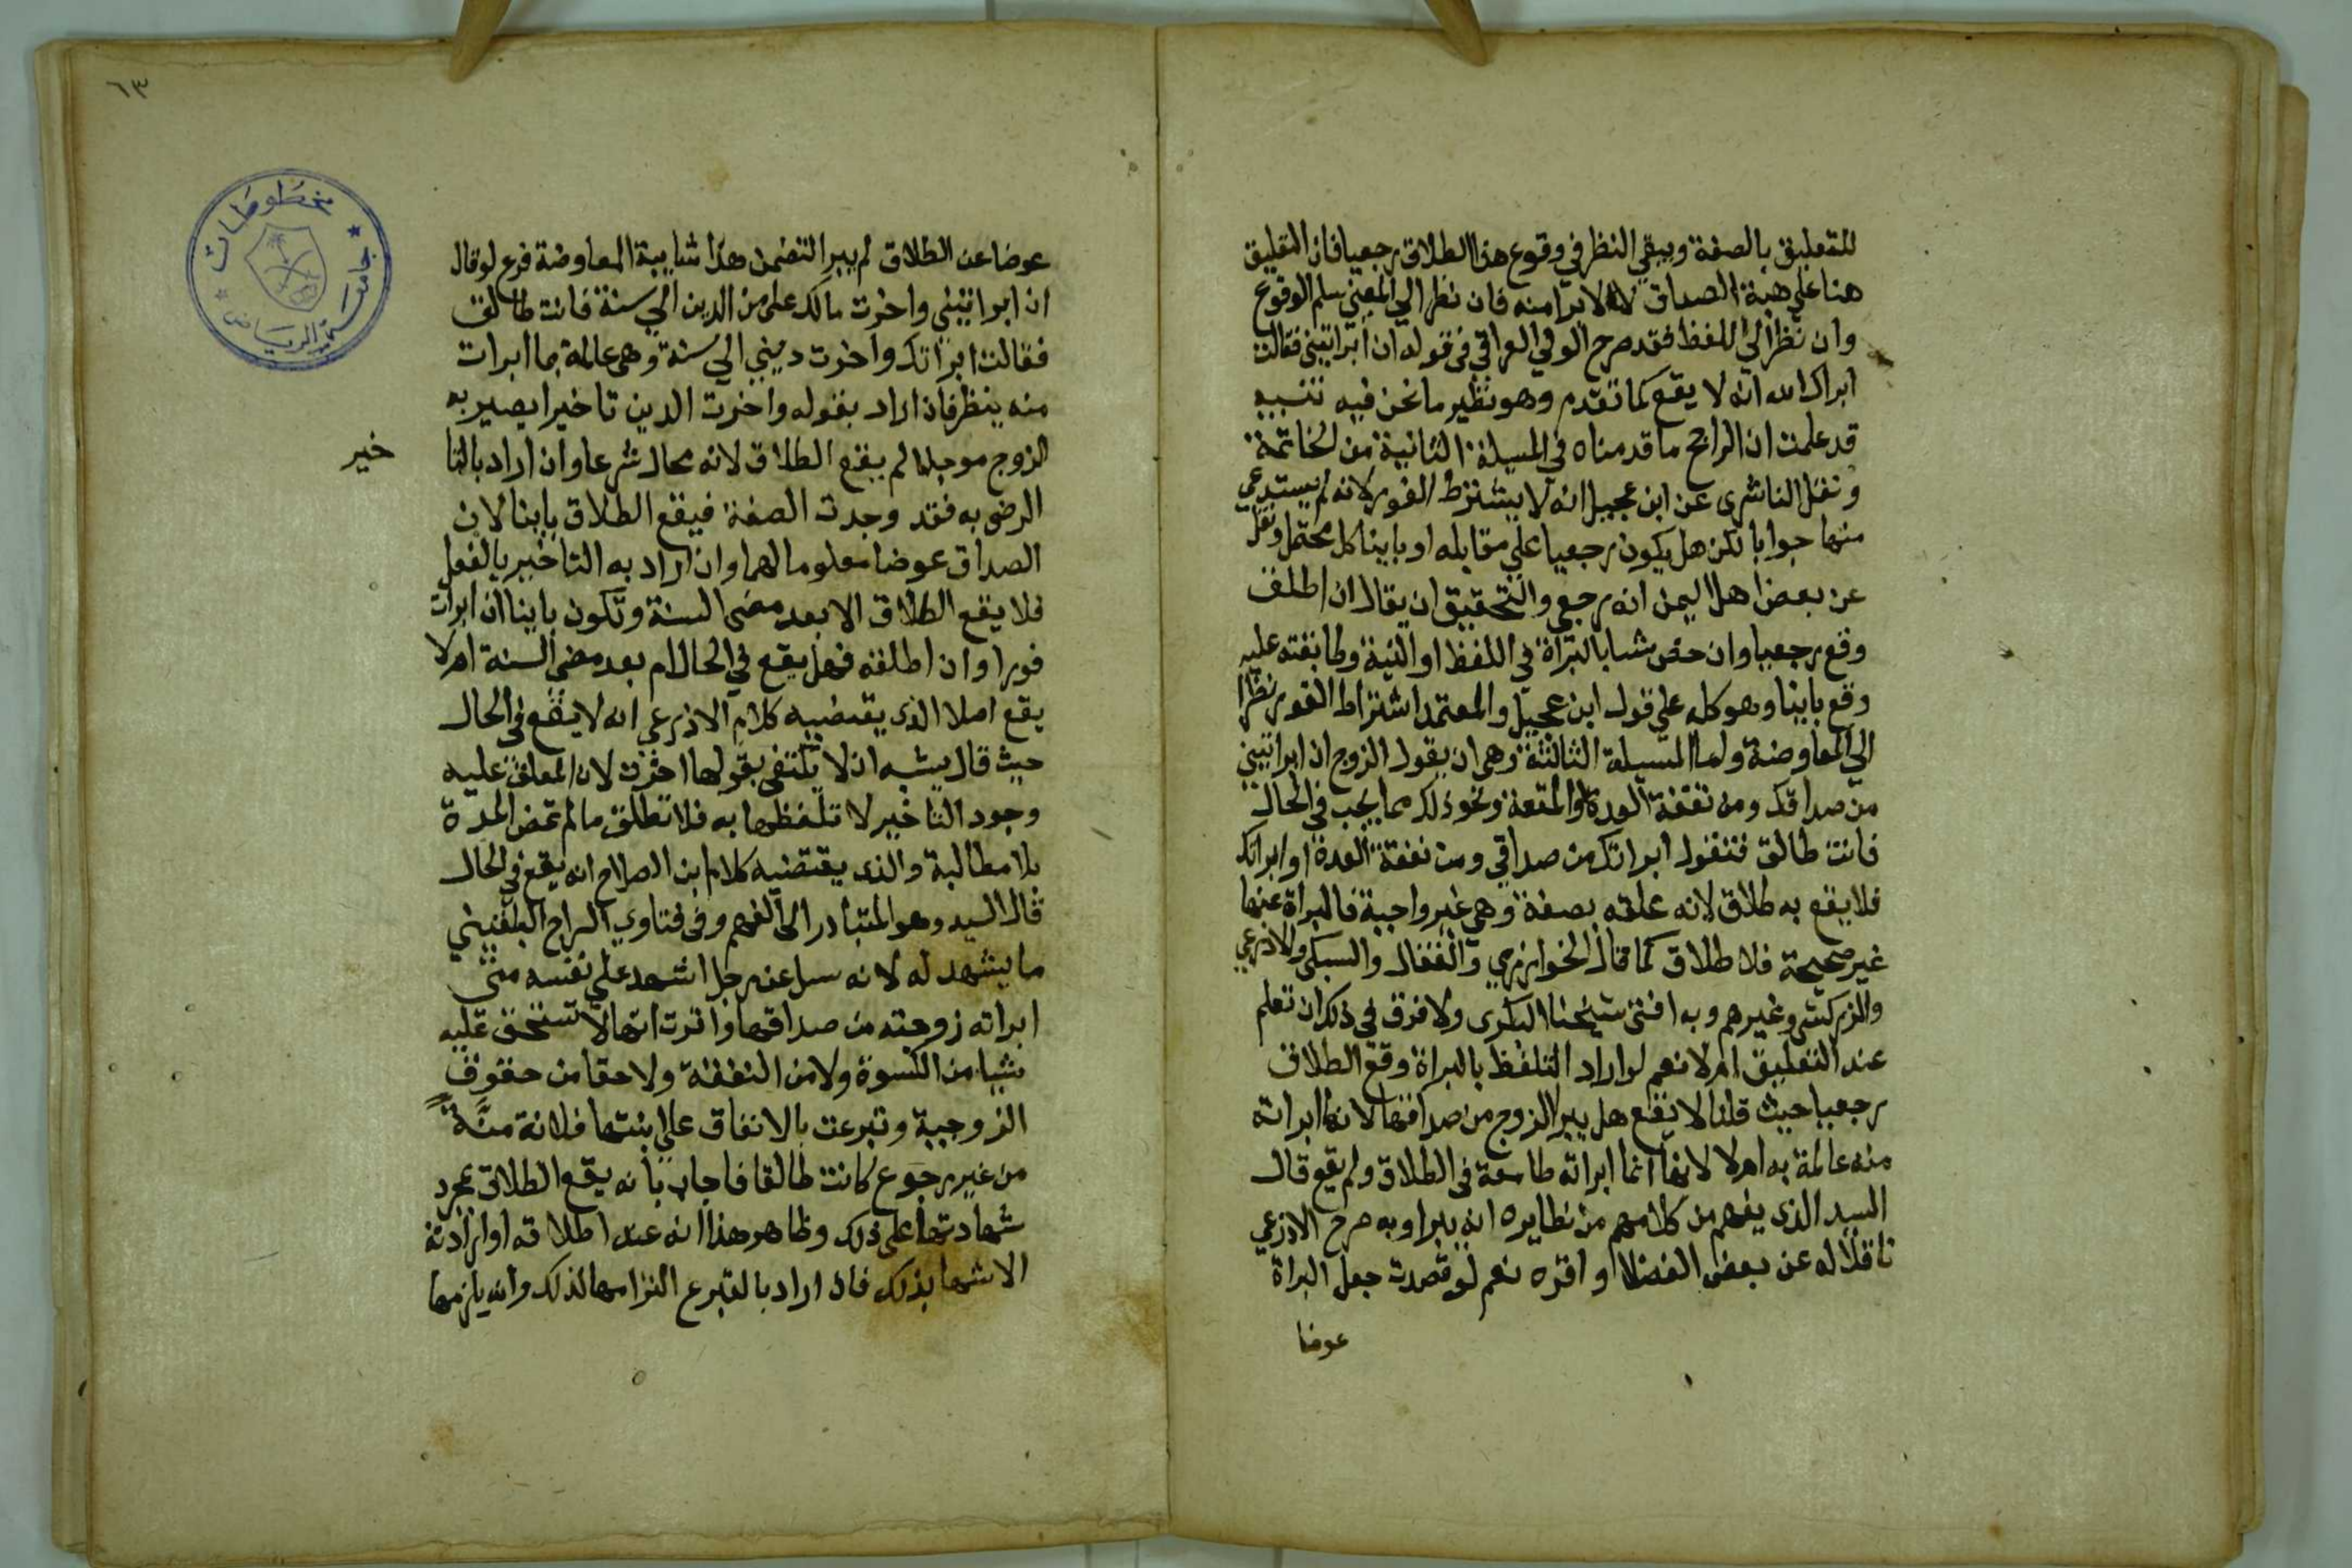 للتعليق بالصفة ويبقي النظر في وقوع هذا الطلاق رجعيا فان التعليق
هنا علي هبة الصداق لا الابرا منه فان نظر الي المعني سلم الوقوع
وان نظر الي اللفظ فقد صرح الولي العراقي في قوله ان ابراتيني فقالت
ابراك الله انه لا يقع كما تقدم وهو نظير ما نحن فيه تنبيه
قد علمت ان الراجح ما قدمناه في المسيلة الثانية من الخاتمة
ونقل الناشرى عن ابن عجيل انه لا يشترط الفور لانه لم يستدعي
منها جوابا لكن هل يكون رجعيا علي مقابله او باينا كل محتمل ونقل
عن بعض اهل اليمن انه رجعي والتحقيق ان يقال ان اطلق
وقع رجعيا وان خص شيا بالبراة في اللفظ او النية وطابقته عليه
وقع باينا وهو كله علي قول ابن عجيل والمعتمد اشتراط الفور نظرا
الي المعاوضة واما المسيلة الثالثة وهي ان يقول الزوج ان ابراتيني
من صداقك ومن نفقة العدة او المتعة ونحو ذلك مما يجب في الحال
فانت طالق فتقول ابراتك من صداقي ومن نفقة العدة او ابراتك
فلا يقع به طلاق لانه علقه بصفة وهي غير واجبة فالبراة عنها
غير صحيحة فلا طلاق كما قال الخوارزمي والقفال والسبكي والاذرعي
والزركشي وغيرهم وبه افتى شيخنا البكرى ولا فرق في ذلك ان تعلم
عند التعليق ام لا نعم لو اراد التلفظ بالبراة وقع الطلاق
رجعيا حيث قلنا لا يقع هل يبرا الزوج من صداقها لانها ابراته
منه عالمة به ام لا لانها انما ابراته طامعة في الطلاق ولم يقع قال
السيد الذى يفهم من كلامهم من نظايره انه يبرا وبه صرح الاذرعي
ناقلا له عن بعض الفضلا واقره نعم لو قصدت جعل البراة
عوضا
٦٣
مخطوطات
جامعة الرياض
عوضا عن الطلاق لم يبرا لتضمن هذا شايبة المعاوضة فرع لو قال
ان ابراتيني واخرت مالك علي من الدين الي سنة فانت طالق
فقالت ابراتك واخرت ديني الي سنة وهي عالمة بما ابرات
منه ينظر فان اراد بقوله واخرت الدين تاخيرا يصير به
الزوج موجلا لم يقع الطلاق لانه محال شرعا وان اراد بالتا
خير
الرضى به فقد وجدت الصفة فيقع الطلاق باينا لان
الصداق عوضا معلوما لهما وان اراد به التاخير بالفعل
فلا يقع الطلاق الا بعد مضى السنة وتكون باينا ان ابرات
فورا وان اطلقه فهل يقع في الحال ام بعد مضي السنة ام لا
يقع اصلا الذى يقتضيه كلام الاذرعي انه لا يقع في الحال
حيث قال يشبه ان لا يكتفى بقولها اخرت لان المعلق عليه
وجود التاخير لا تلفظها به فلا تطلق ما لم تمض المدة
بلا مطالبة والذى يقتضيه كلام ابن الصلاح انه يقع في الحال
قال السيد وهو المتبادر الى الفهم وفي فتاوي السراج البلقيني
ما يشهد له لانه سيل عن رجل اشهد علي نفسه متى
ابراته زوجته من صداقها واقرت انها لا تستحق عليه
شيا من الكسوة ولا من النفقة ولا حقا من حقوق
الزوجية وتبرعت بالانفاق علي ابنتها فلانة سنة
من غير رجوع كانت طالقا فاجاب بانه يقع الطلاق بمجرد
شهادتها على ذلك وظاهر هذا انه عند اطلاقه او ارادته
الاشهاد بذلك فان اراد بالتبرع التزامها لذلك وانه يلزمها